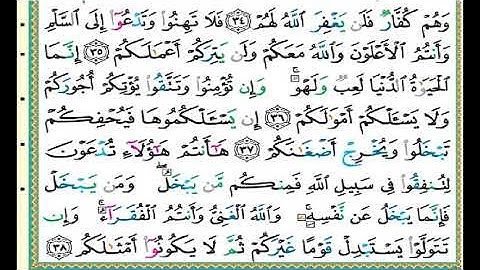 وَهُمْ كُفَّارٌ فَلَن يَغْفِرَ ٱللَّهُ لَهُمْ ۝٣٤ فَلَا تَهِنُوا۟ وَتَدْعُوٓا۟ إِلَى ٱلسَّلْمِ
وَأَنتُمُ ٱلْأَعْلَوْنَ وَٱللَّهُ مَعَكُمْ وَلَن يَتِرَكُمْ أَعْمَـٰلَكُمْ ۝٣٥ إِنَّمَا
ٱلْحَيَوٰةُ ٱلدُّنْيَا لَعِبٌ وَلَهْوٌ ۚ وَإِن تُؤْمِنُوا۟ وَتَتَّقُوا۟ يُؤْتِكُمْ أُجُورَكُمْ
وَلَا يَسْـَٔلْكُمْ أَمْوَٰلَكُمْ ۝٣٦ إِن يَسْـَٔلْكُمُوهَا فَيُحْفِكُمْ
تَبْخَلُوا۟ وَيُخْرِجْ أَضْغَـٰنَكُمْ ۝٣٧ هَـٰٓأَنتُمْ هَـٰٓؤُلَآءِ تُدْعَوْنَ
لِتُنفِقُوا۟ فِى سَبِيلِ ٱللَّهِ فَمِنكُم مَّن يَبْخَلُ ۖ وَمَن يَبْخَلْ
فَإِنَّمَا يَبْخَلُ عَن نَّفْسِهِۦ ۚ وَٱللَّهُ ٱلْغَنِىُّ وَأَنتُمُ ٱلْفُقَرَآءُ ۚ وَإِن
تَتَوَلَّوْا۟ يَسْتَبْدِلْ قَوْمًا غَيْرَكُمْ ثُمَّ لَا يَكُونُوٓا۟ أَمْثَـٰلَكُم ۝٣٨